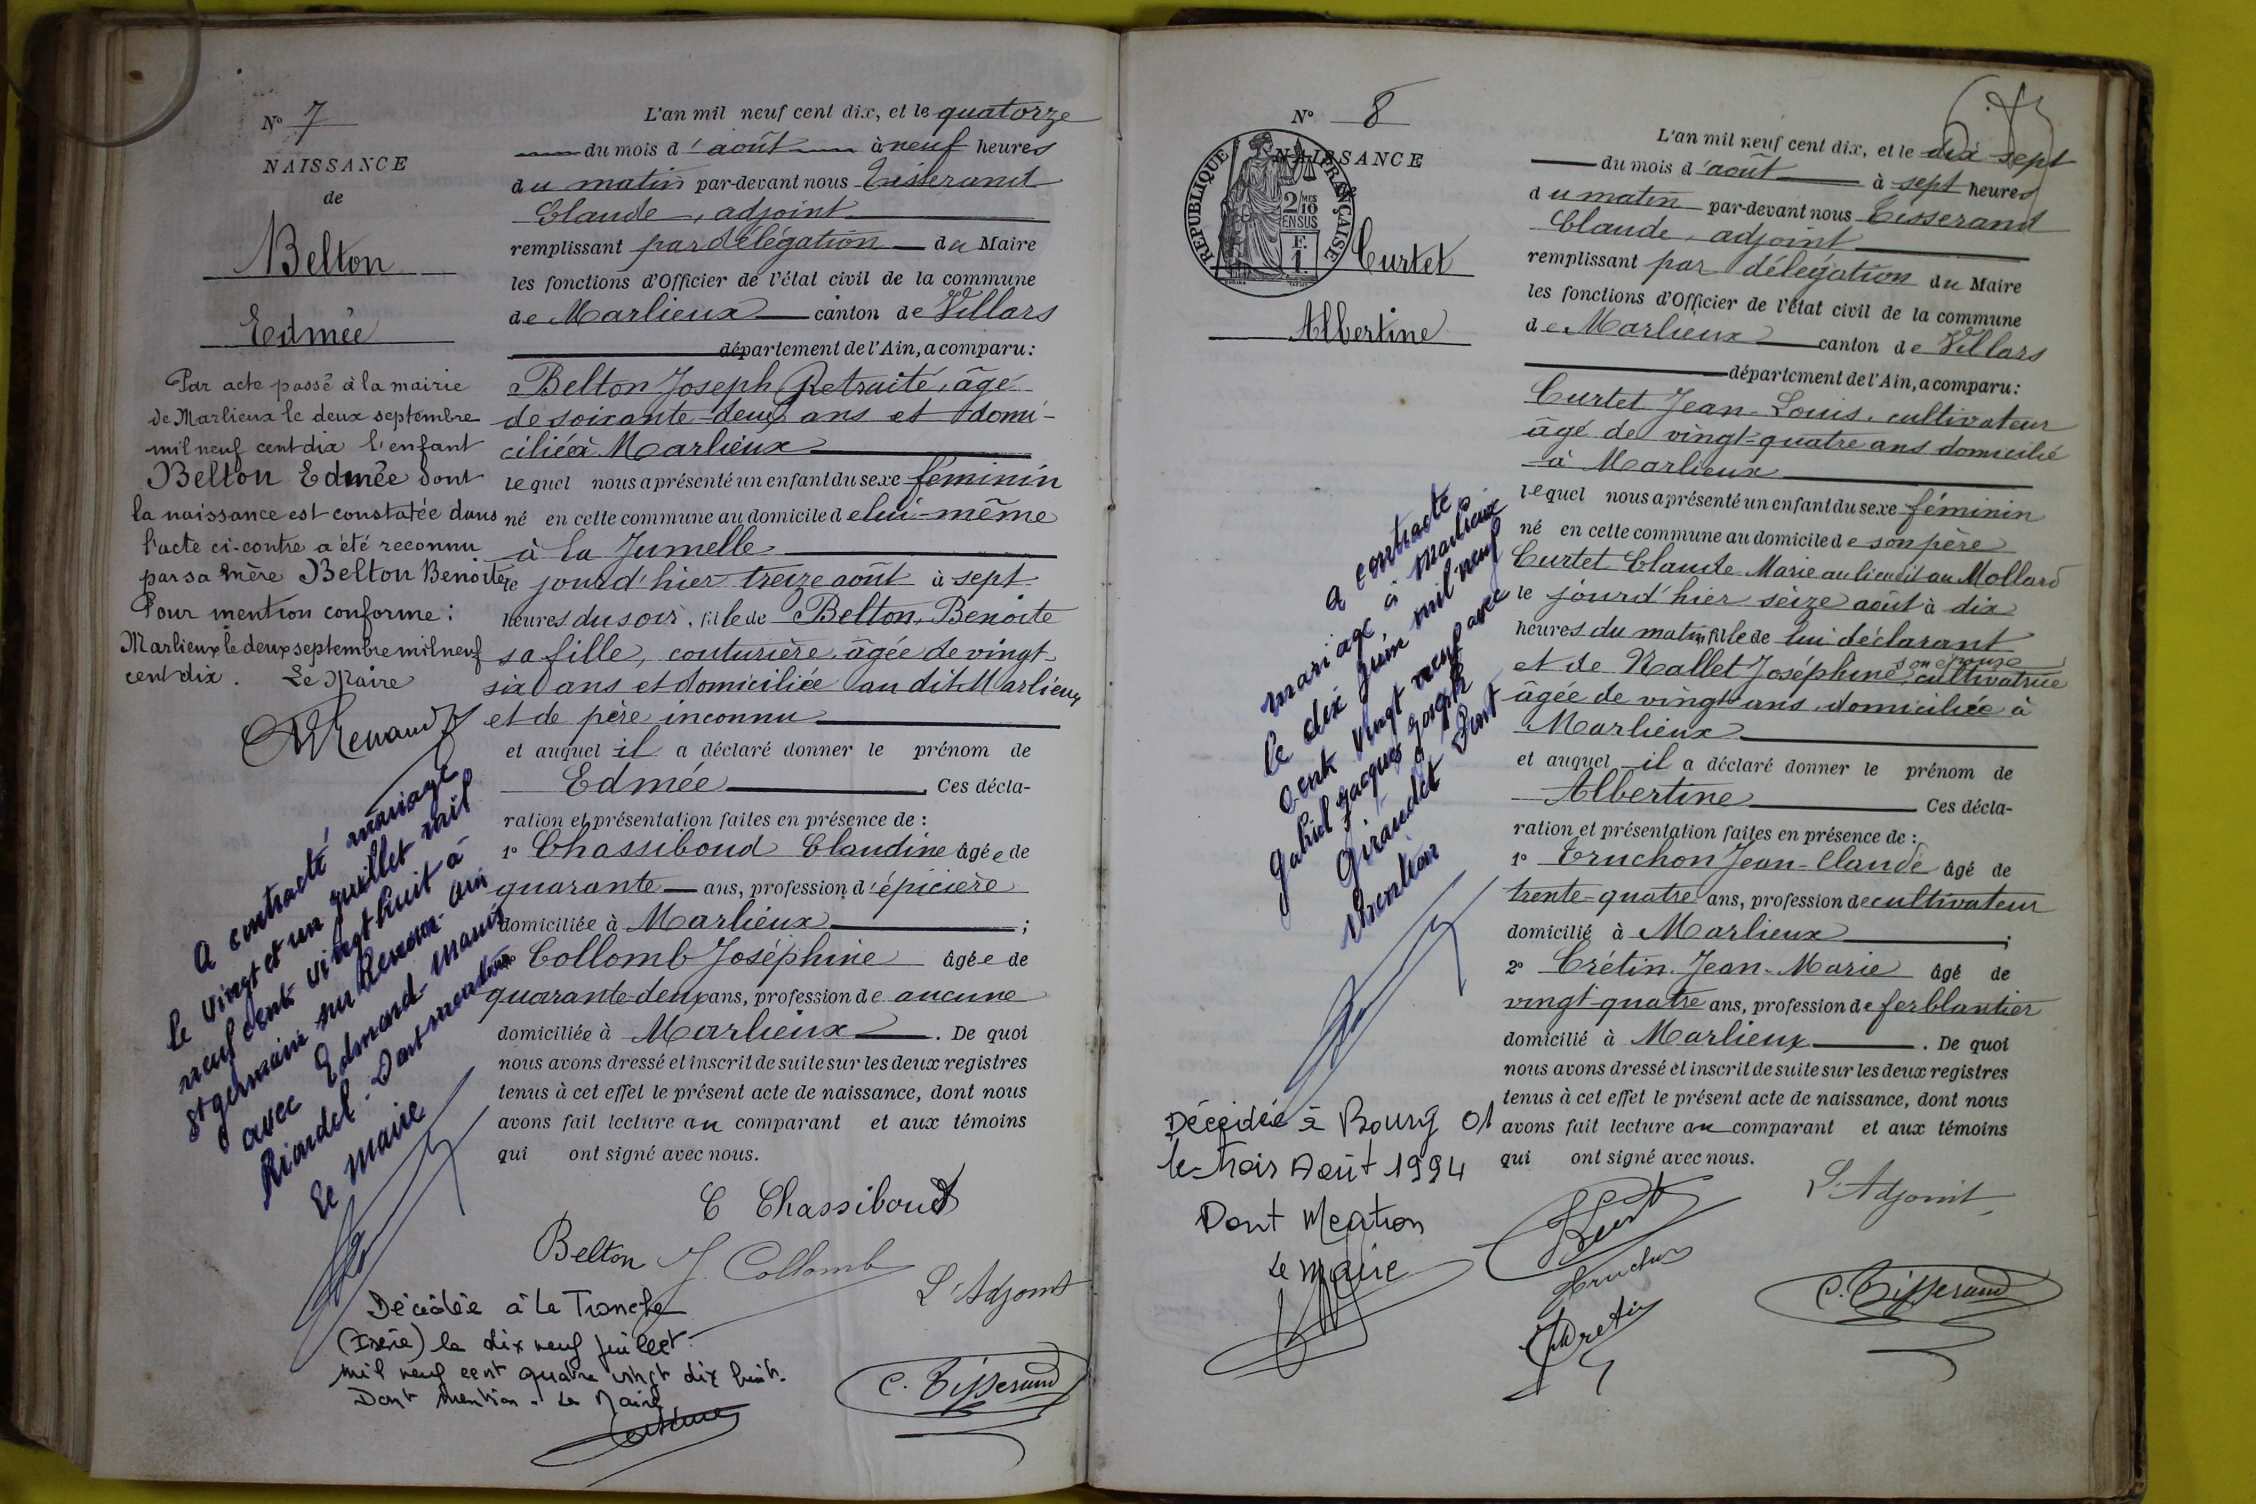 N° 7
NAISSANCE
de
Belton
Edmée
Par acte passé à la mairie
de Marlieux le deux septembre
mil neuf cent dix l'enfant
Belton Edmée dont
la naissance est constatée dans
l'acte ci-contre a été reconnu
par sa mère Belton Benoite
Pour mention conforme :
Marlieux le deux septembre mil neuf
cent dix. Le Maire
A contracté mariage
le vingt et un juillet mil
neuf cent vingt huit à
St germain sur Renon Ain
avec Edmond Maurice
Riondel. Dont mention
Le Maire
L'an mil neuf cent dix, et le quatorze
du mois d'août à neuf heures
du matin par-devant nous Tisserand
Claude, adjoint
remplissant par délégation du Maire
les fonctions d'Officier de l'état civil de la commune
de Marlieux canton de Villars
département de l'Ain, a comparu :
Belton Joseph Retraité, âgé
de soixante deux ans et domi-
cilié à Marlieux
lequel nous a présenté un enfant du sexe féminin
né en cette commune au domicile de lui-même
à la Jumelle
le jourd'hier treize août à sept
heures du soir, fille de Belton, Benoite
sa fille, couturière, âgée de vingt
six ans et domiciliée au dit Marlieux
et de père inconnu
et auquel il a déclaré donner le prénom de
Edmée Ces décla-
ration et présentation faites en présence de :
1° Chassiboud Claudine âgée de
quarante ans, profession d'épicière
domiciliée à Marlieux ;
2° Collomb Joséphine âgée de
quarante-deux ans, profession de aucune
domiciliée à Marlieux . De quoi
nous avons dressé et inscrit de suite sur les deux registres
tenus à cet effet le présent acte de naissance, dont nous
avons fait lecture au comparant et aux témoins
qui ont signé avec nous.
C Chassiboud
Belton J. Collomb
L'Adjoint
C. Tisserand
Décédée à La Tronche
(Isère) le dix neuf juillet
mil neuf cent quatre vingt dix huit.
Dont mention. Le Maire
N° 8
NAISSANCE
RÉPUBLIQUE FRANÇAISE
2/10 MES
EN SUS
F.
1.
Curtet
Albertine
A contracté
mariage à Marlieux
le dix juin mil neuf
cent vingt neuf avec
Gabriel Jacques Joseph
Giraudet Dont
Mention
Décédée à Bourg 01
le trois Août 1994
Dont Mention
Le Maire
L'an mil neuf cent dix, et le dix-sept
du mois d'août à sept heures
du matin par-devant nous Tisserand
Claude, adjoint
remplissant par délégation du Maire
les fonctions d'Officier de l'état civil de la commune
de Marlieux canton de Villars
département de l'Ain, a comparu :
Curtet Jean-Louis, cultivateur
âgé de vingt-quatre ans domicilié
à Marlieux
lequel nous a présenté un enfant du sexe féminin
né en cette commune au domicile de son père
Curtet Claude Marie au lieu dit au Mollard
le jourd'hier seize août à dix
heures du matin fille de lui déclarant
et de Nallet Joséphine son épouse cultivatrice
âgée de vingt ans, domiciliée à
Marlieux
et auquel il a déclaré donner le prénom de
Albertine Ces décla-
ration et présentation faites en présence de :
1° Truchon Jean-Claude âgé de
trente-quatre ans, profession de cultivateur
domicilié à Marlieux ;
2° Crétin Jean-Marie âgé de
vingt-quatre ans, profession de ferblantier
domicilié à Marlieux . De quoi
nous avons dressé et inscrit de suite sur les deux registres
tenus à cet effet le présent acte de naissance, dont nous
avons fait lecture au comparant et aux témoins
qui ont signé avec nous.
L'Adjoint
Truchon
C. Tisserand